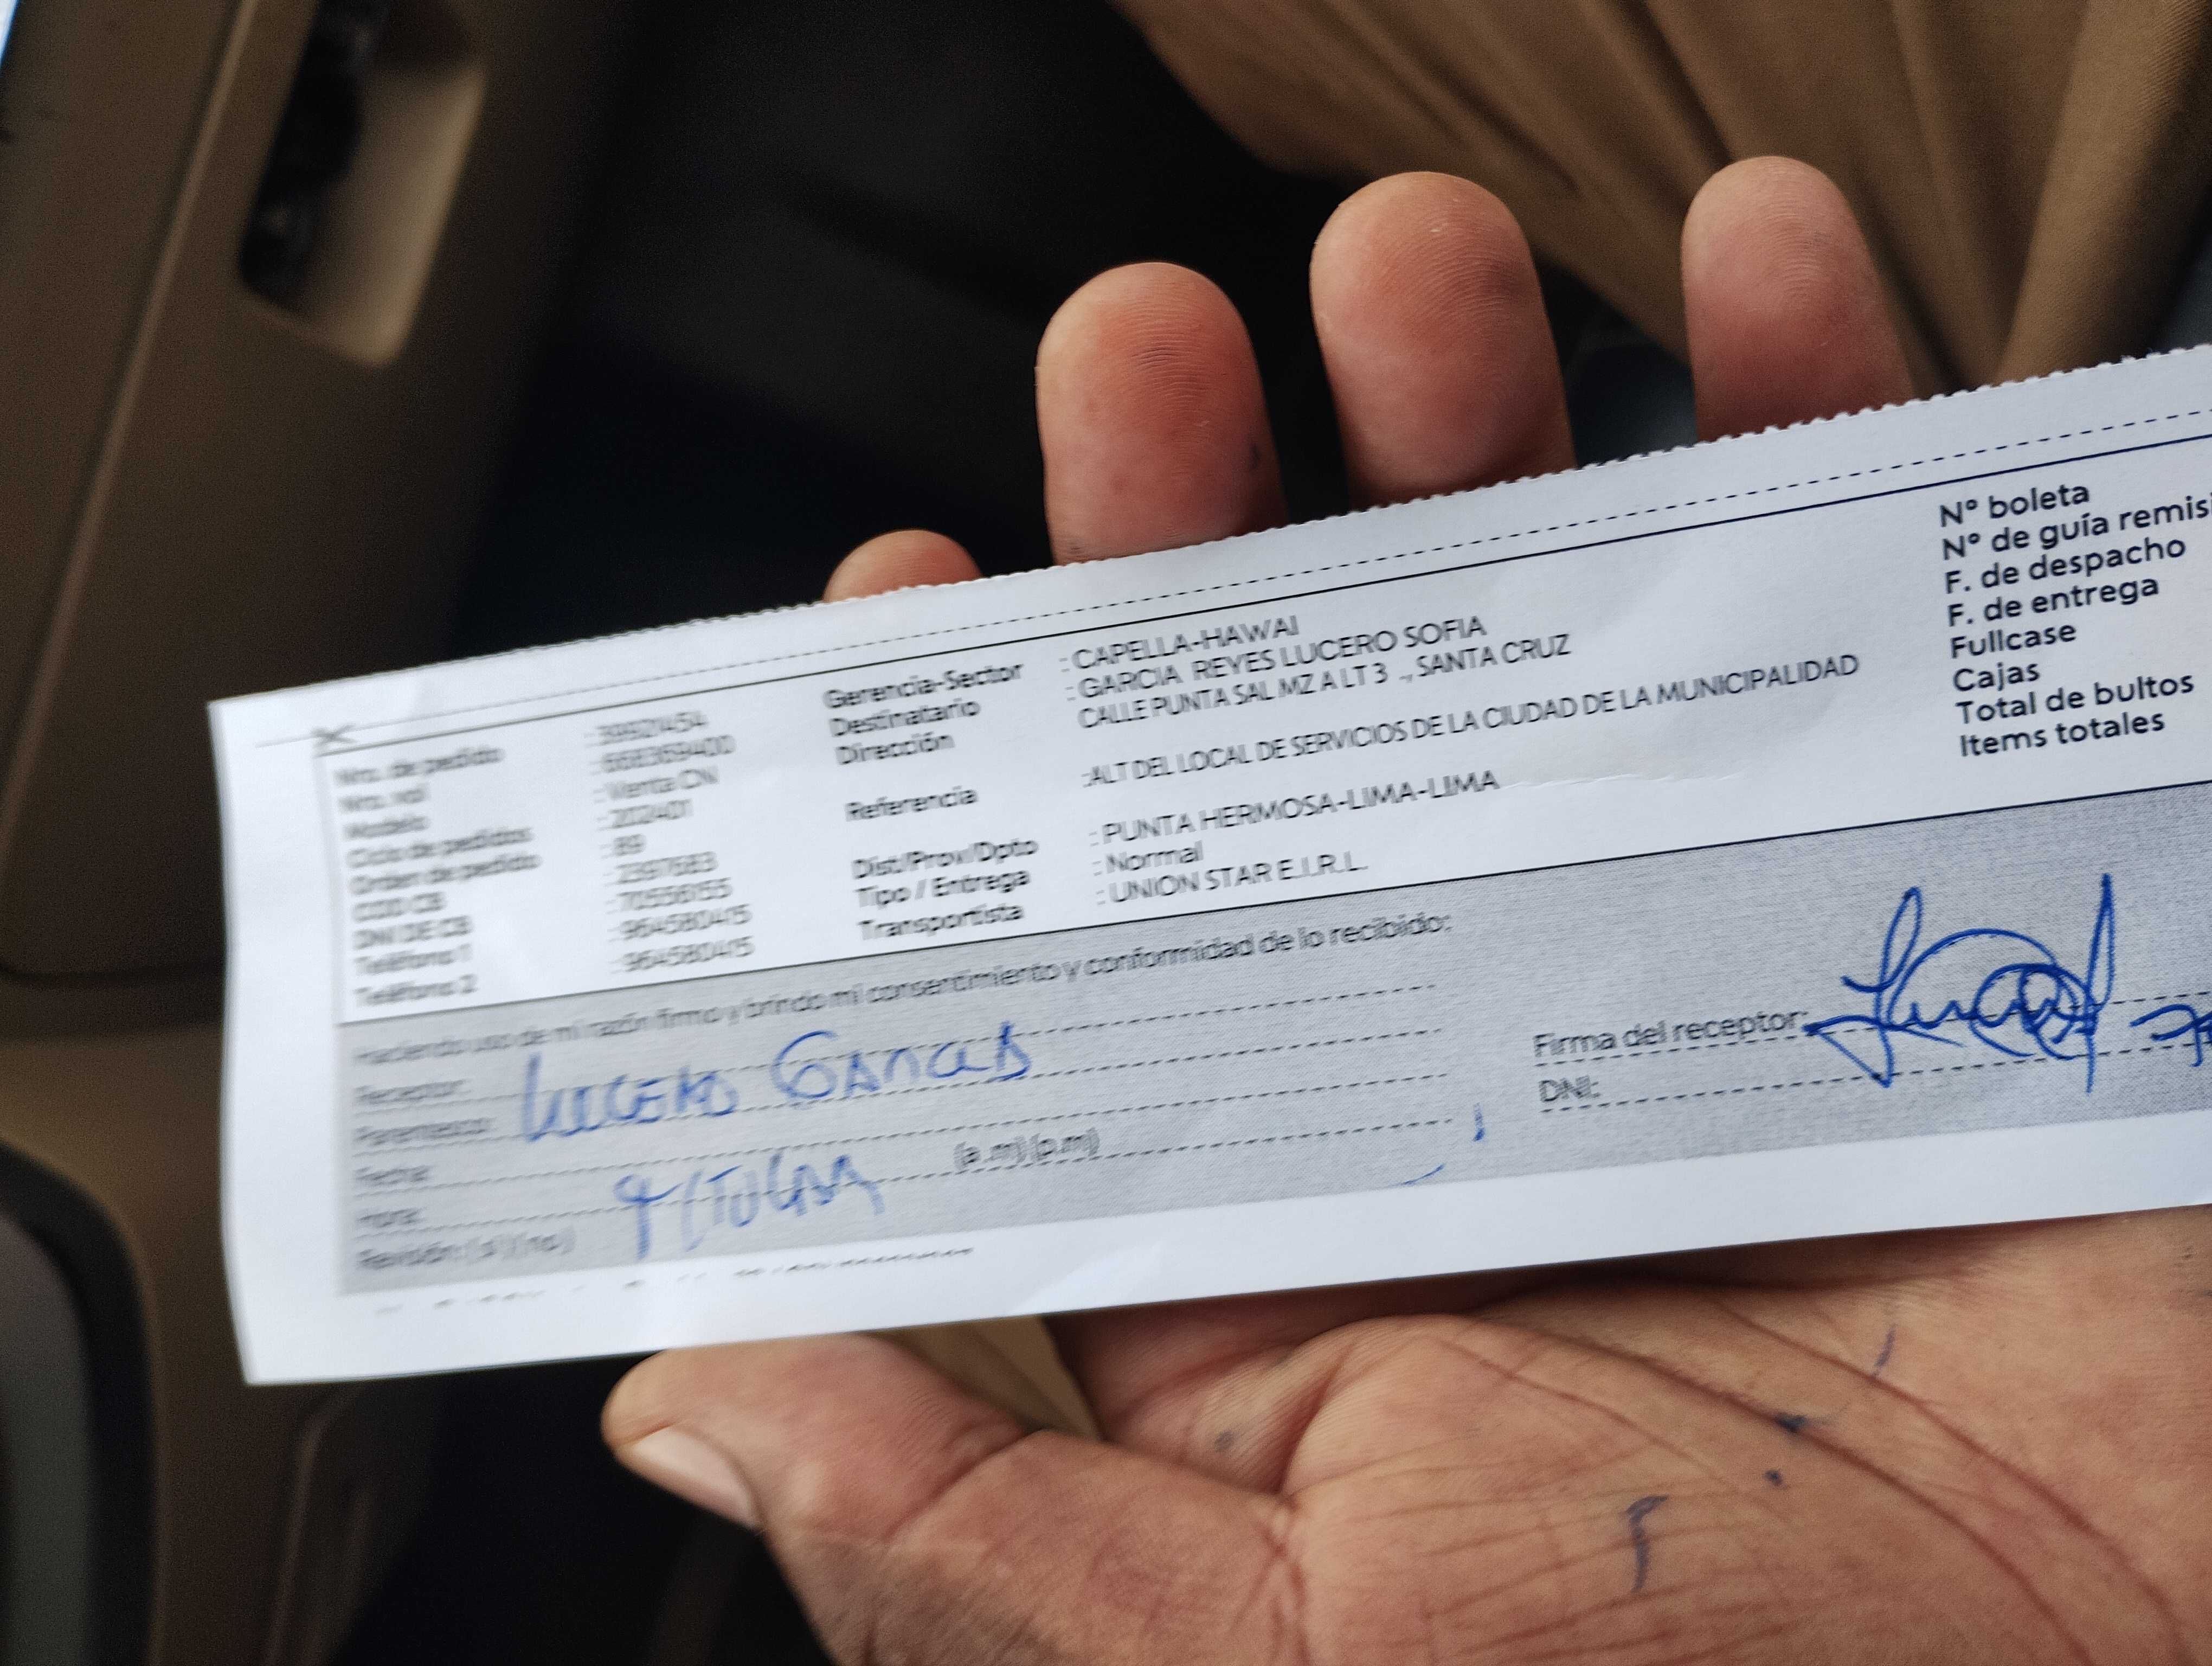 Nro. de pedido : 39921454
Nro. vol : 668369400
Modelo : Venta CN
Ciclo de pedidos : 202401
Orden de pedido : 89
COD CB : 2397683
DNI DE CB : 70556155
Teléfono 1 : 964580415
Teléfono 2 : 964580415
Gerencia-Sector : CAPELLA-HAWAI
Destinatario : GARCIA REYES LUCERO SOFIA
Dirección CALLE PUNTA SAL MZ A LT 3 ., SANTA CRUZ
Referencia :ALT DEL LOCAL DE SERVICIOS DE LA CIUDAD DE LA MUNICIPALIDAD
Dist/Prov/Dpto : PUNTA HERMOSA-LIMA-LIMA
Tipo / Entrega : Normal
Transportista : UNION STAR E.I.R.L.
N° boleta
N° de guía remisi
F. de despacho
F. de entrega
Fullcase
Cajas
Total de bultos
Items totales
Haciendo uso de mi razón firmo y brindo mi consentimiento y conformidad de lo recibido:
Receptor:
Parentesco:
Fecha:
Hora: (a.m)(p.m)
Revisión: (si) (no)
Firma del receptor:
DNI: